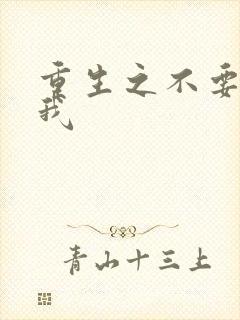 重生之不要
我
青山十三上